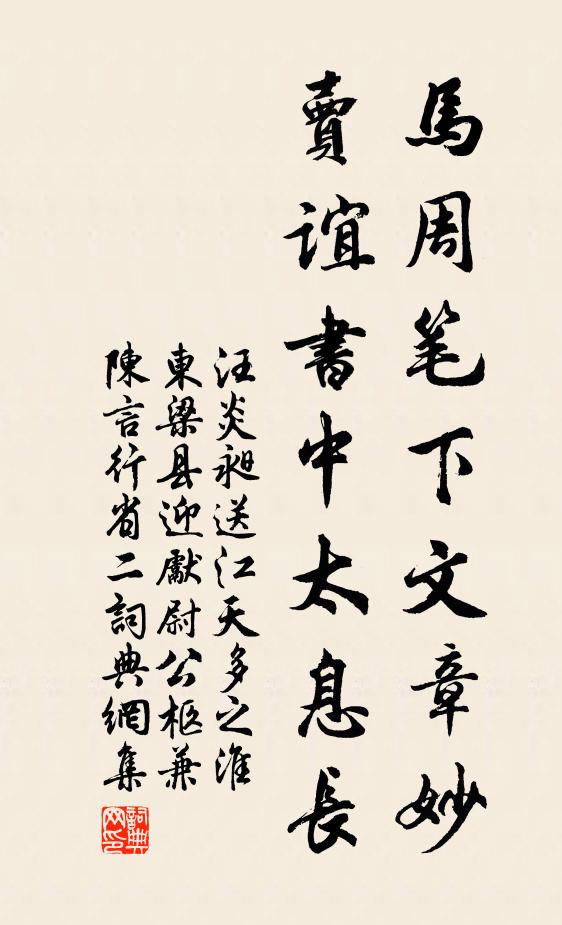 馬周笔下文章妙
賣誼書中太息長
汪炎昶送江天多之淮
東梁县迎獻尉公柩兼
陳言行省二詞典網集
詞典网印